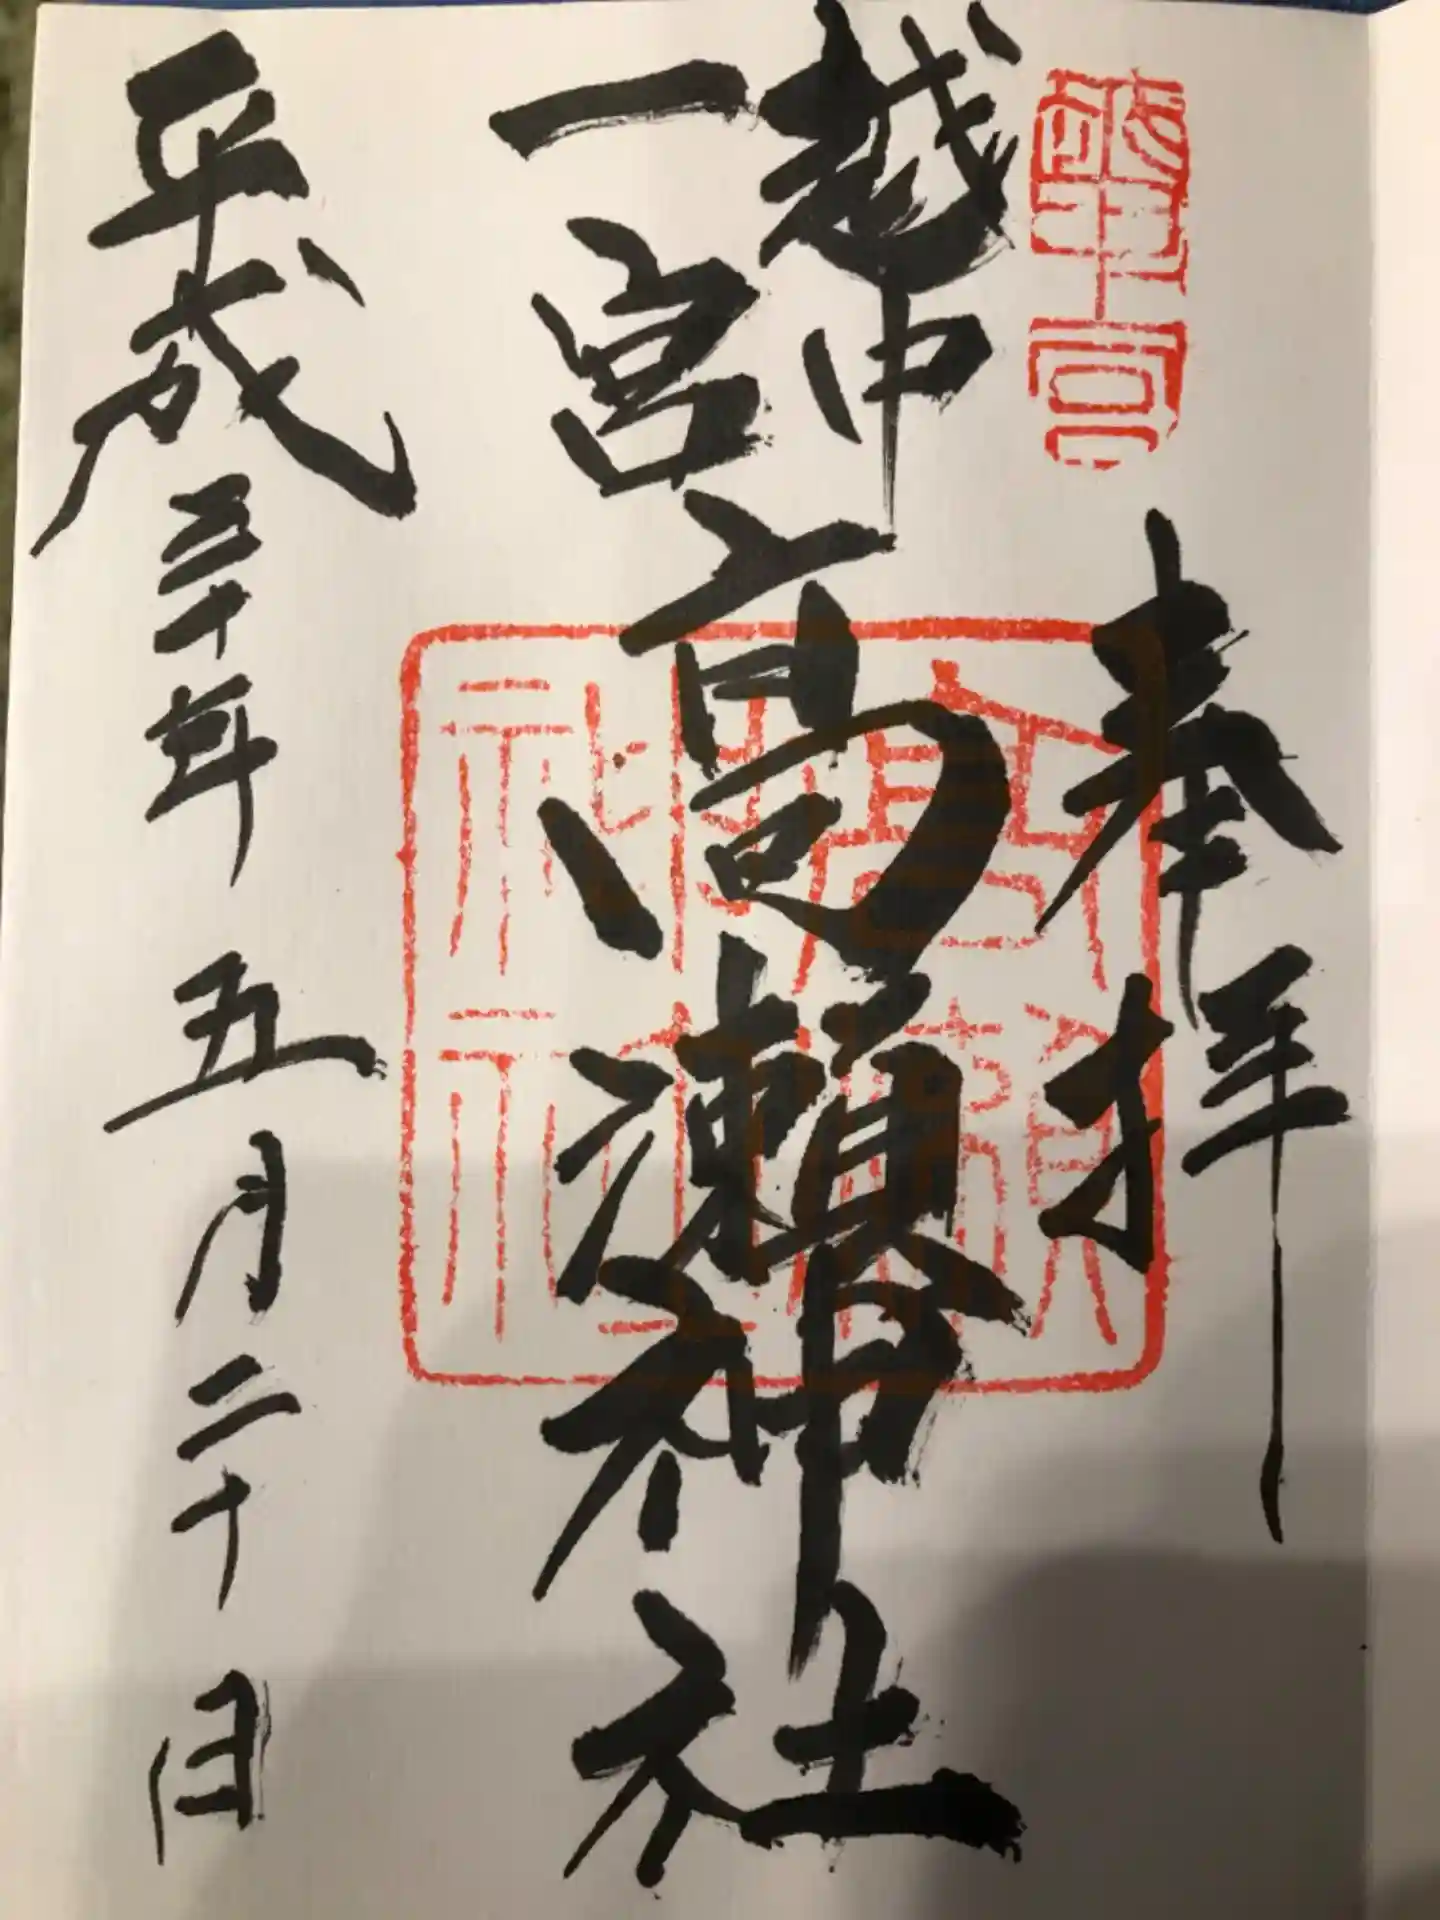 奉拝
越中
一宮
高瀬神社
高瀬神社
平成三十年 五月二十日